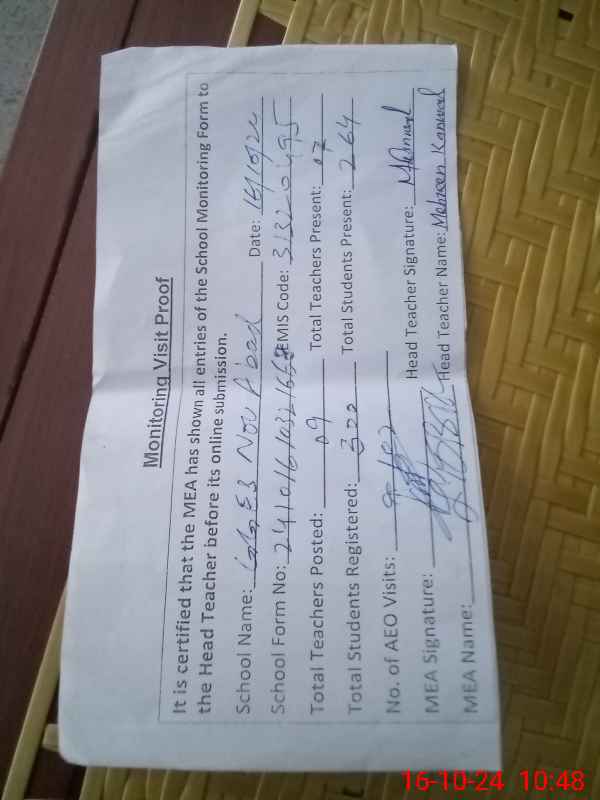 Monitoring Visit Proof
It is certified that the MEA has shown all entries of the School Monitoring Form to
the Head Teacher before its online submission.
School Name: GGES Nou Abad Date: 16/10/24
School Form No: EMIS Code: 31320495
Total Teachers Posted: 09 Total Teachers Present: 07
Total Students Registered: 300 Total Students Present: 264
No. of AEO Visits:
MEA Signature: Head Teacher Signature:
MEA Name: Head Teacher Name: Mehreen Kanwal
16-10-24 10:48